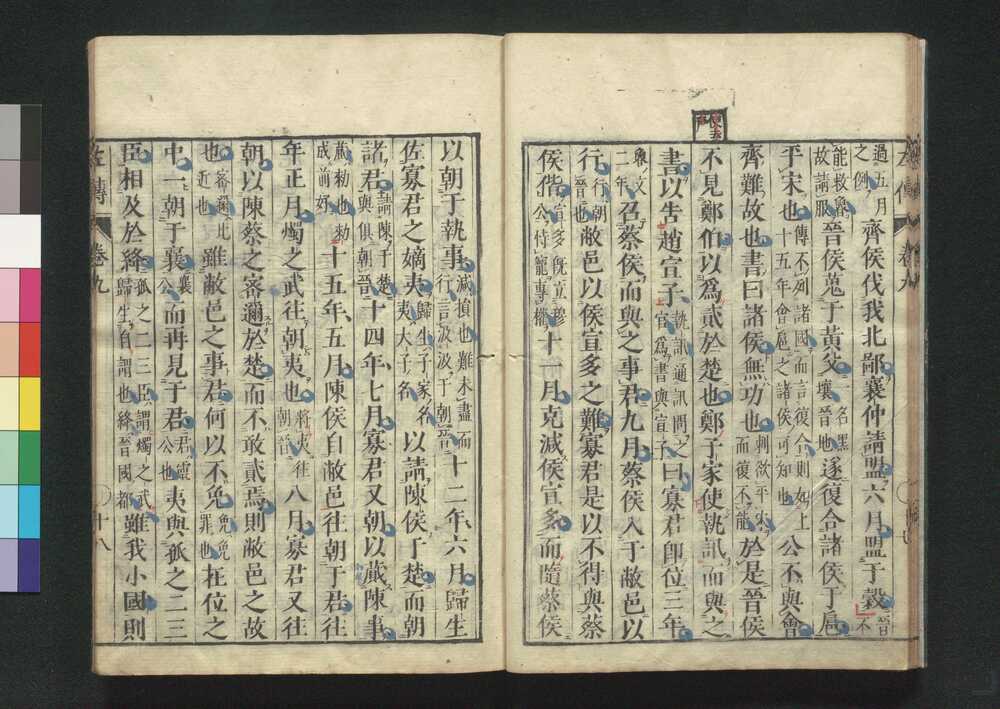 過五月之例齊侯伐我北鄙襄仲請盟六月盟于穀晉不
能救魯故請服晉侯蒐于黃父一名黑壤晉地遂復合諸侯于扈
平宋也傳不列諸國而言復合則如上十五年會扈之諸侯可知也公不與會
齊難故也書曰諸侯無功也刺欲平宋而復不能於是晉侯
不見鄭伯以爲貳於楚也鄭子家使執訊而與之
書以告趙宣子執訊通訊問之官爲書與宣子曰寡君卽位三年
魯文二年召蔡侯而與之事君九月蔡侯入于敝邑以
行行朝晉也敝邑以侯宣多之難寡君是以不得與蔡
侯偕宣多旣立穆公恃寵專權十一月克減侯宣多而隨蔡侯
以朝于執事減損也難未盡而行言汲汲于朝晉十二年六月歸生
佐寡君之嫡夷歸生子家名夷大子名以請陳侯于楚而朝
諸君請陳于楚與俱朝晉十四年七月寡君又朝以蕆陳事
蕆勑也勑成前好十五年五月陳侯自敝邑往朝于君往
年正月燭之武往朝夷也將夷往朝晉八月寡君又往
朝以陳蔡之密邇於楚而不敢貳焉則敝邑之故
也密邇比近也雖敝邑之事君何以不免免免罪也在位之
中一朝于襄襄公而再見于君君靈公也夷與孤之二三
臣相及於絳孤之二三臣謂燭之武歸生自謂也絳晉國都雖我小國則
左傳 卷九 十八